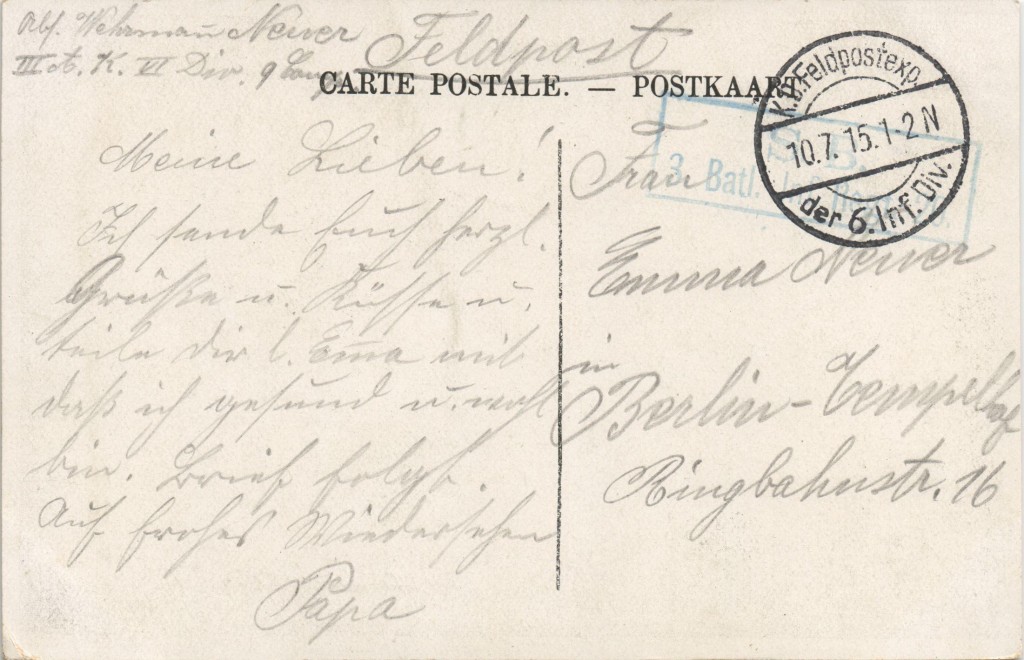 Abs. Wehrmann Neuer
III. A. K. VI Div. 9 Comp
Feldpost
CARTE POSTALE. — POSTKAART
K.D. Feldpostexp.
10.7.15.1-2 N
der 6. Inf. Div.
S. B.
3. Batl.
Meine Lieben!
Ich sende Euch herzl.
Grüße u. Küsse u.
teile Dir l. Emma mit
daß ich gesund u. wohl
bin. Brief folgt.
Auf frohes Wiedersehen
Papa
Frau
Emma Neuer
in
Berlin-Tempelhof
Ringbahnstr. 16